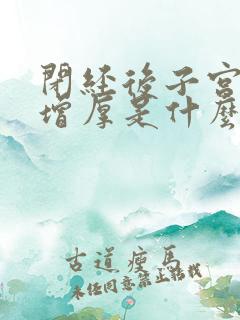 閉經後子宮
增厚是什麼
古道瘦馬
未任同意禁止轉載